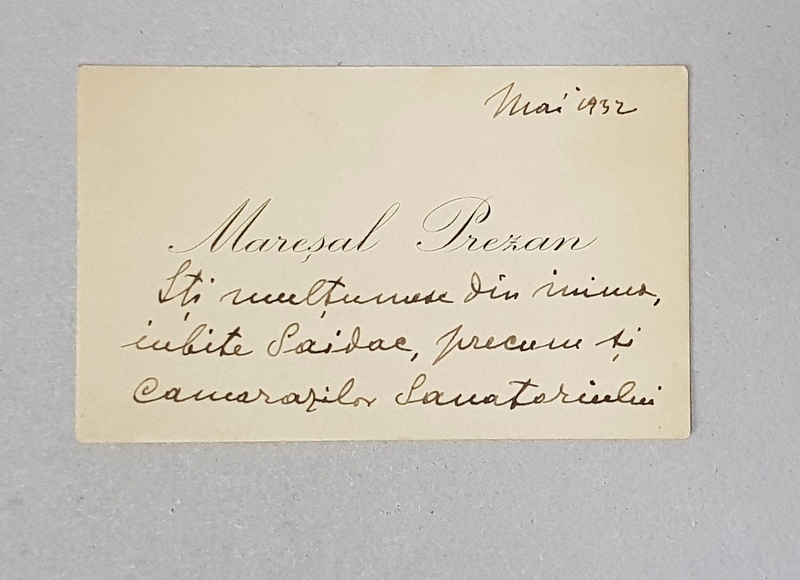 Mai 1932
Mareșal Prezan
Iți mulțumesc din inima,
iubite Saidac, precum și
Camarazilor Sanatoriului